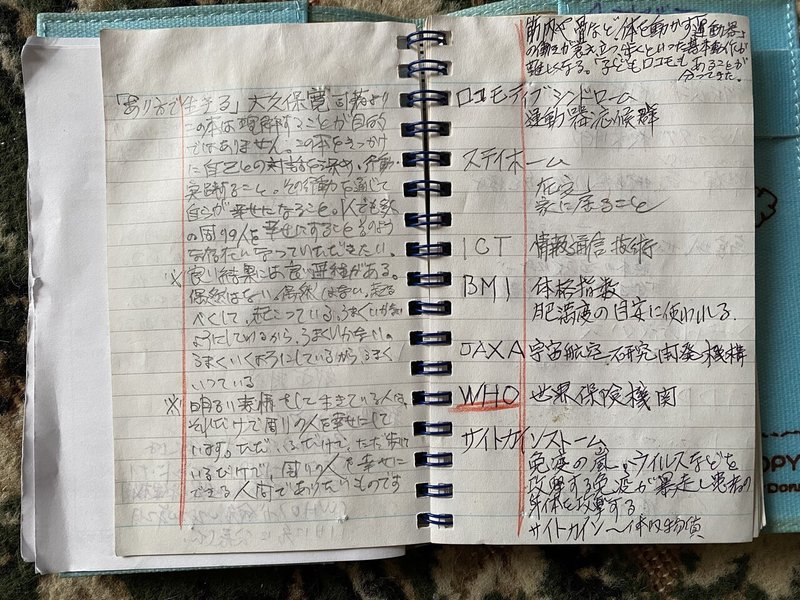 「あり方で生きる」大久保寛司著より
この本は理解することが目的
ではありません。この本をきっかけ
に自己との対話を深め、行動
実践すること。その行動を通じて
自らが幸せになること。1人でも多く
の周りの人を幸せにすること そのような
存在になっていただきたい。
※良い結果には良い過程がある。
偶然はない、偶然はない、起る
べくして、起こっている、うまくいかない
ようにしているから、うまくいかない。
うまくいくようにしているから、うまく
いっている
※明るい表情をして生きている人は、
それだけで周りの人を幸せにして
います。ただ いるだけで、ただ 歩いて
いるだけで、周りの人を幸せに
できる人間でありたいものです
筋肉や骨など体を動かす「運動器」
の働きが衰え立つ、歩くといった基本動作が
難しくなる。「子どもロコモ」もあることが
分ってきた。
ロコモティブシンドローム
運動器症候群
ステイホーム
在宅
家に居ること
ICT 情報通信技術
BMI 体格指数
肥満度の目安に使われる
JAXA 宇宙航空研究開発機構
WHO 世界保険機関
サイトカインストーム
免疫の嵐、ウイルスなどを
攻撃する免疫が暴走し患者の
身体を攻撃する
サイトカイン〜体内物質